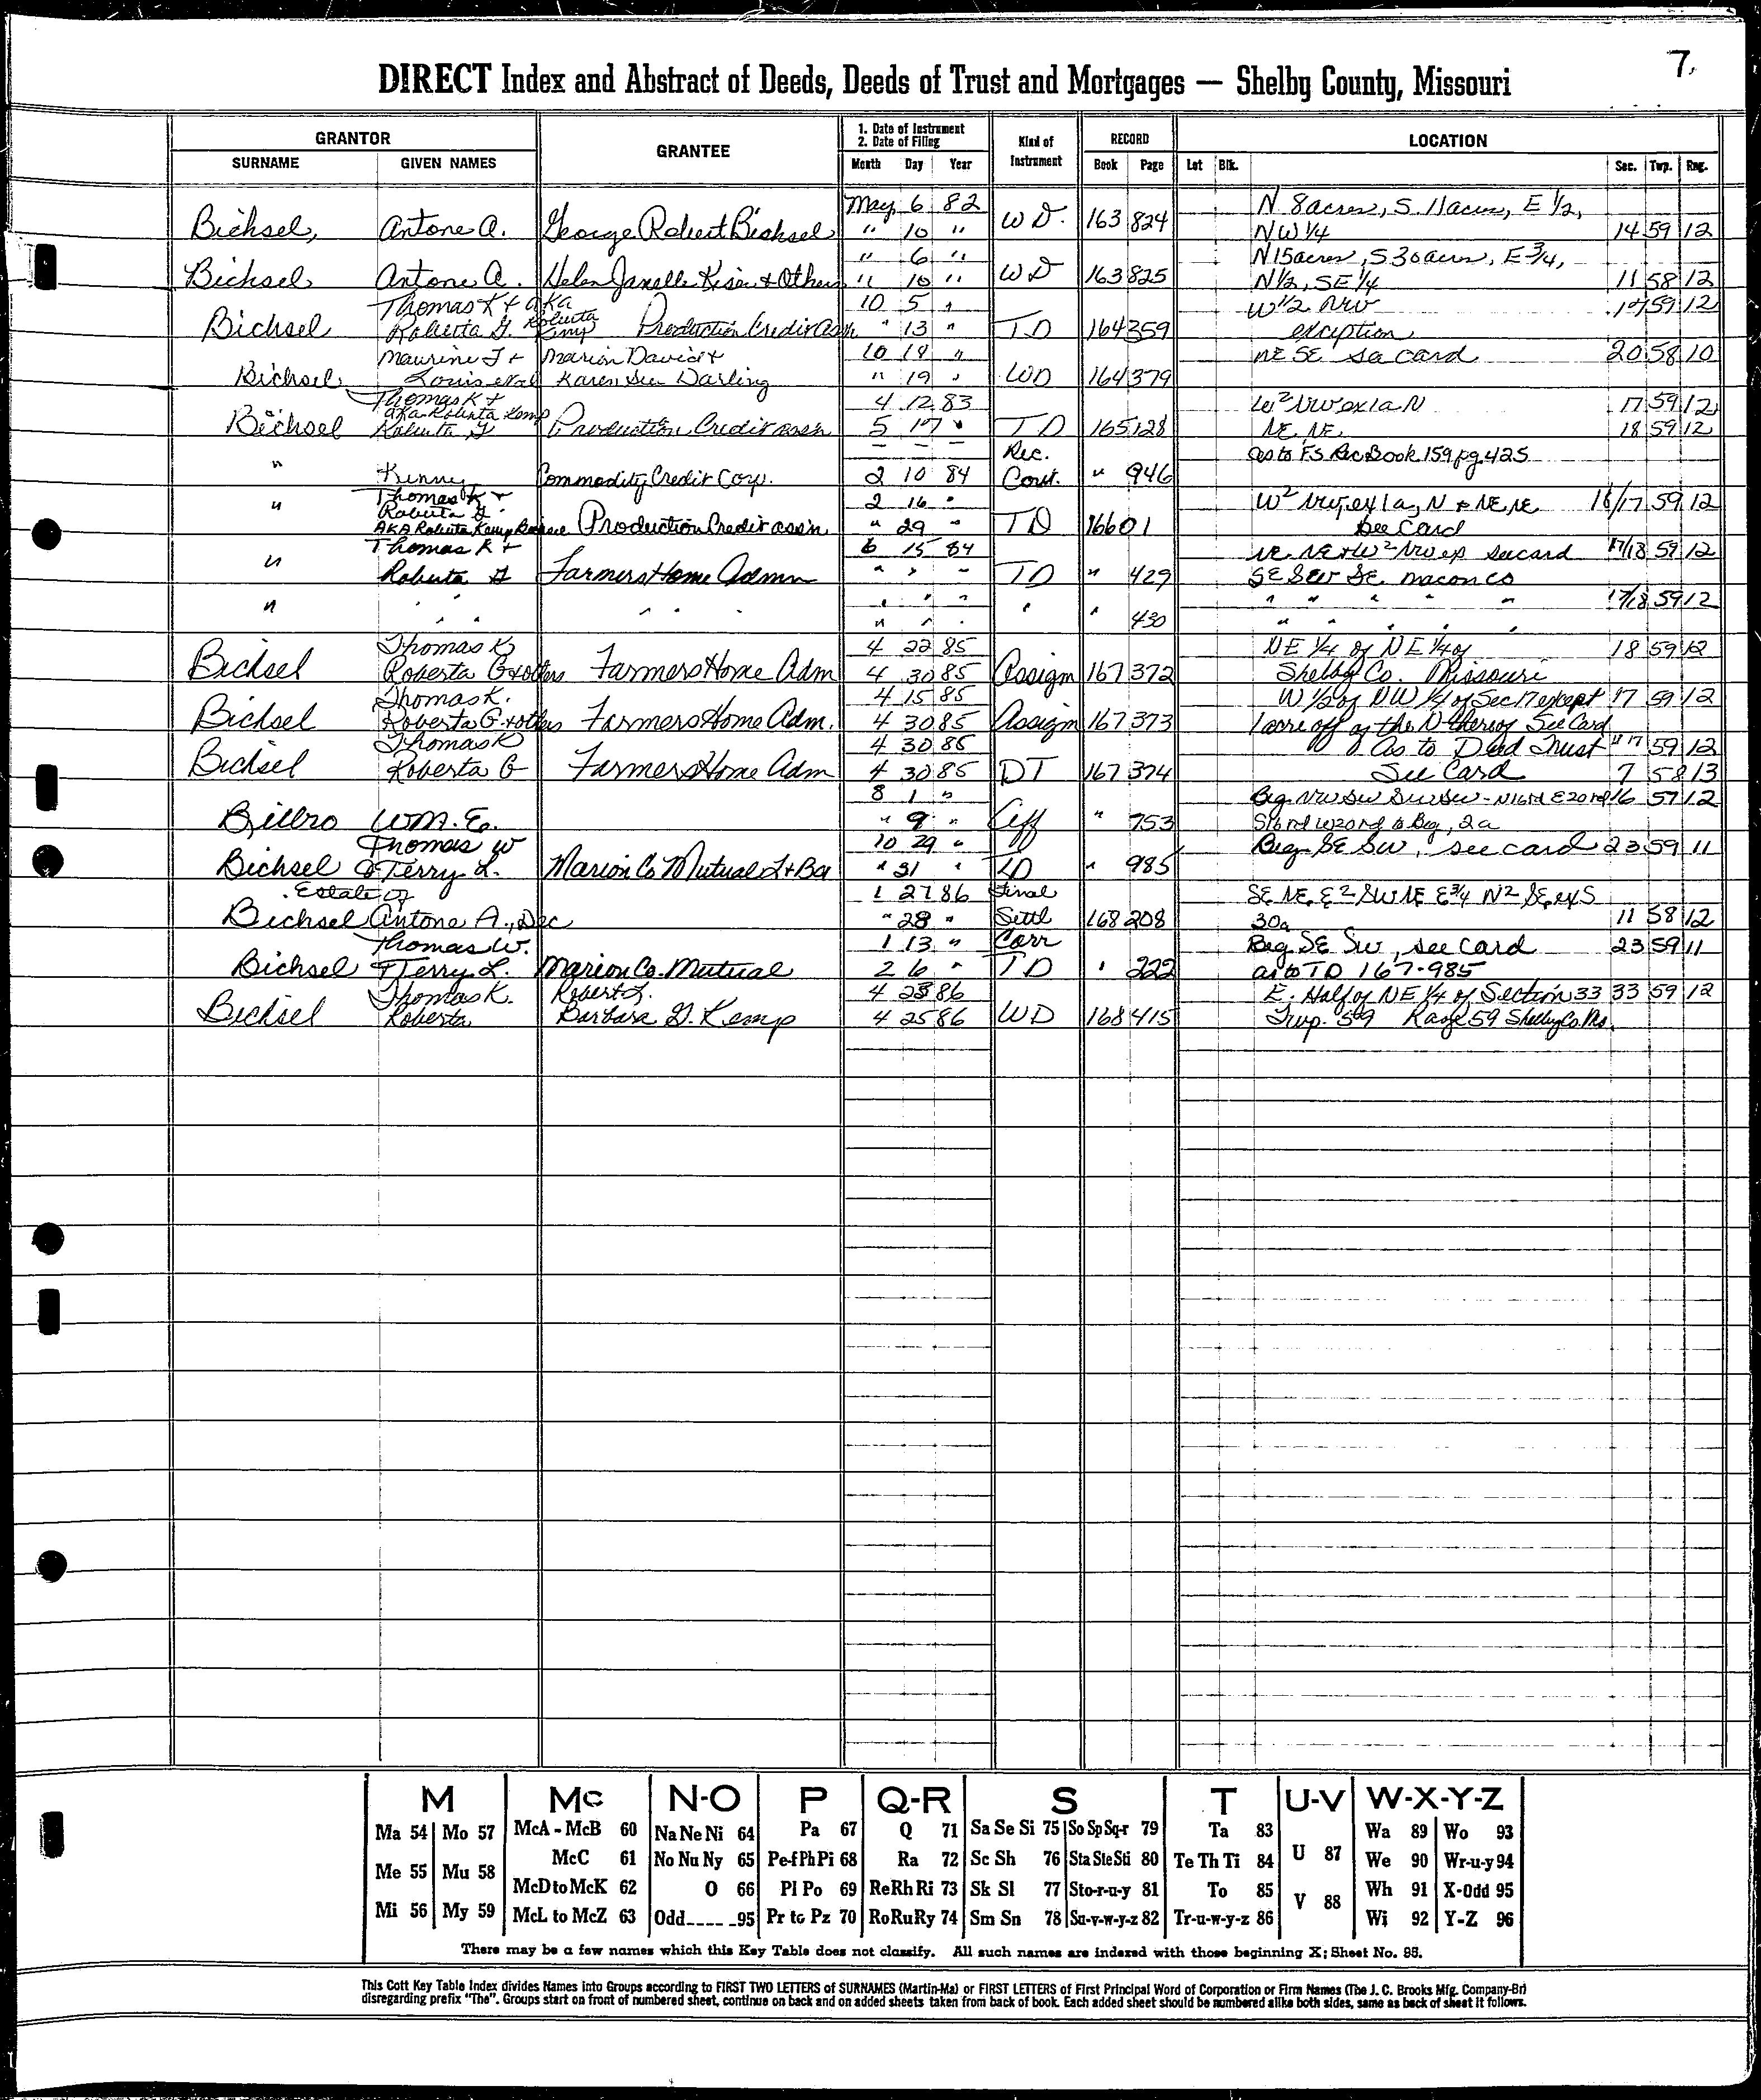 7.
DIRECT Index and Abstract of Deeds, Deeds of Trust and Mortgages — Shelby County, Missouri
GRANTOR GRANTEE 1. Date of Instrument 2. Date of Filing Kind of Instrument RECORD LOCATION
SURNAME GIVEN NAMES Month Day Year Book Page Lot Blk. Sec. Twp. Rng.
May 6 82 N 8 acres, S. 11 acres, E 1/2,
Bichsel, Antone A. George Robert Bichsel " 10 " WD. 163 824 NW 1/4 14 59 12
" 6 " N 15 acres, S 30 acres, E 3/4,
Bichsel Antone A. Helen Janelle & Others " 10 " WD 163 825 N 1/2, SE 1/4 11 58 12
Thomas K + aka 10 5 " W 1/2 NW 17 59 12
Bichsel Roberta G. Roberta Kemp Production Credit Assn " 13 " TD 164 359 exception
Maurine J + Marion David + 10 18 " NE SE see card 20 58 10
Bichsel Louis Karen Sue Darling " 19 " WD 164 379
Thomas K + 4 12 83 W² NW ex 1a N 17 59 12
aka Roberta Kemp
Bichsel Roberta G Production Credit assn 5 17 " TD 165 128 NE, NE, 18 59 12
– – – Rec. as to F.S Rec Book 159 pg. 425
" Kenny Commodity Credit Corp. 2 10 84 Cont. " 946
Thomas K + 2 16 " W² NW, ex 1a, N + NE, NE 18/17 59 12
" Roberta G.
AKA Roberta Kemp Production Credit assn " 29 " TD 166 01 See Card
Thomas K + 6 15 84 NE NE + W² NW ex see card 17/18 59 12
" Roberta G Farmers Home Admn " " " TD " 429 SE SW SE Macon co
" " " " " " " " " " " " " " " 17/18 59 12
" " " " " 430 " " " " "
Thomas K 4 22 85 NE 1/4 of NE 1/4 of 18 59 12
Bichsel Roberta G + others Farmers Home Adm 4 30 85 Assigm 167 372 Shelby Co. Missouri
Thomas K. 4 15 85 W 1/2 of NW 1/4 of Sec 17 except 17 59 12
Bichsel Roberta G. + others Farmers Home Adm. 4 30 85 Assigm 167 373 1 acre off of the N thereof See Card
Thomas K 4 30 85 As to Deed Trust " 17 59 12
Bichsel Roberta G Farmers Home Adm 4 30 85 DT 167 374 See Card 7 58 13
8 1 " Beg NW SW SW SW - N16rd E20rd 16 57 12
Wm. E. " 9 " Aff " 753 S16rd W20rd to Beg, 2a
Thomas W 10 29 " Beg. SE SW, see card 23 59 11
Bichsel & Terry L. Marion Co Mutual " 31 " TD " 985
Estate of 1 27 86 Final SE NE, E² SW NE E3/4 N² SE, ex S
Bichsel Antone A., Dec " 28 " Settl 168 208 30a 11 58 12
Thomas W. 1 13 " Corr Beg SE SW, see card 23 59 11
Bichsel & Terry L. Marion Co. Mutual 2 6 " TD " 222 as to TD 167-985
Thomas K. Robert L. 4 25 86 E. Half of NE 1/4 of Section 33 33 59 12
Bichsel Roberta Barbara G. Kemp 4 25 86 WD 168 415 Twp. 59 Range 59 Shelby Co. Mo.
M Mc N-O P Q-R S T U-V W-X-Y-Z
Ma 54 Mo 57 McA - McB 60 Na Ne Ni 64 Pa 67 Q 71 Sa Se Si 75 So Sp Sq-r 79 Ta 83 Wa 89 Wo 93
Me 55 Mu 58 McC 61 No Nu Ny 65 Pe-f Ph Pi 68 Ra 72 Sc Sh 76 Sta Ste Sti 80 Te Th Ti 84 U 87 We 90 Wr-u-y 94
McD to McK 62 O 66 Pl Po 69 Re Rh Ri 73 Sk Sl 77 Sto-r-u-y 81 To 85 V 88 Wh 91 X-Odd 95
Mi 56 My 59 McL to McZ 63 Odd_____95 Pr to Pz 70 Ro Ru Ry 74 Sm Sn 78 Su-v-w-y-z 82 Tr-u-w-y-z 86 Wi 92 Y-Z 96
There may be a few names which this Key Table does not classify. All such names are indexed with those beginning X; Sheet No. 95.
This Cott Key Table Index divides Names into Groups according to FIRST TWO LETTERS of SURNAMES (Martin-Ma) or FIRST LETTERS of First Principal Word of Corporation or Firm Names (The J. C. Brooks Mfg. Company-Br)
disregarding prefix "The". Groups start on front of numbered sheet, continue on back and on added sheets taken from back of book. Each added sheet should be numbered alike both sides, same as back of sheet it follows.